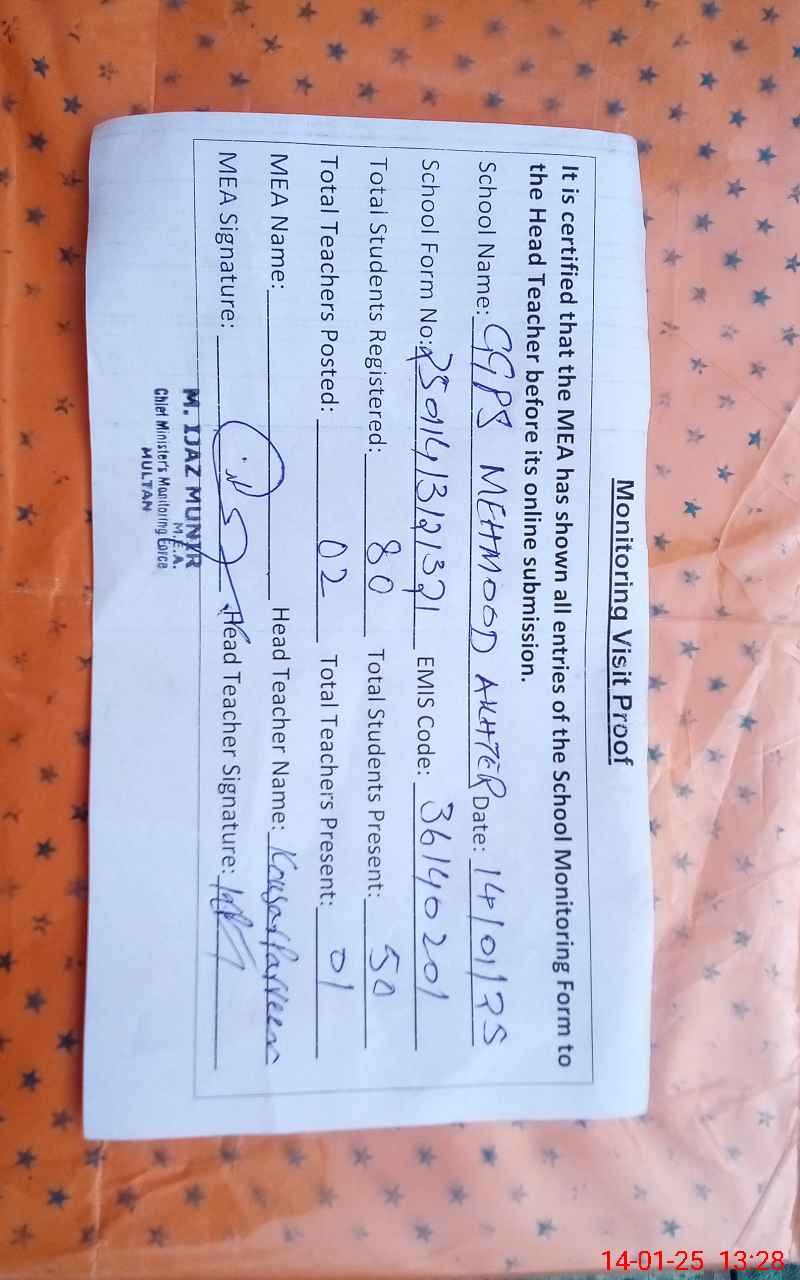 Monitoring Visit Proof
It is certified that the MEA has shown all entries of the School Monitoring Form to
the Head Teacher before its online submission.
School Name: GGPS MEHMOOD AKHTER Date: 14/01/25
School Form No: EMIS Code: 36140201
Total Students Registered: 80 Total Students Present: 50
Total Teachers Posted: 02 Total Teachers Present: 01
MEA Name: Head Teacher Name: Kousar Parveen
MEA Signature: Head Teacher Signature:
M. IJAZ MUNIR
M.E.A.
Chief Minister's Monitoring Force
MULTAN
14-01-25 13:28